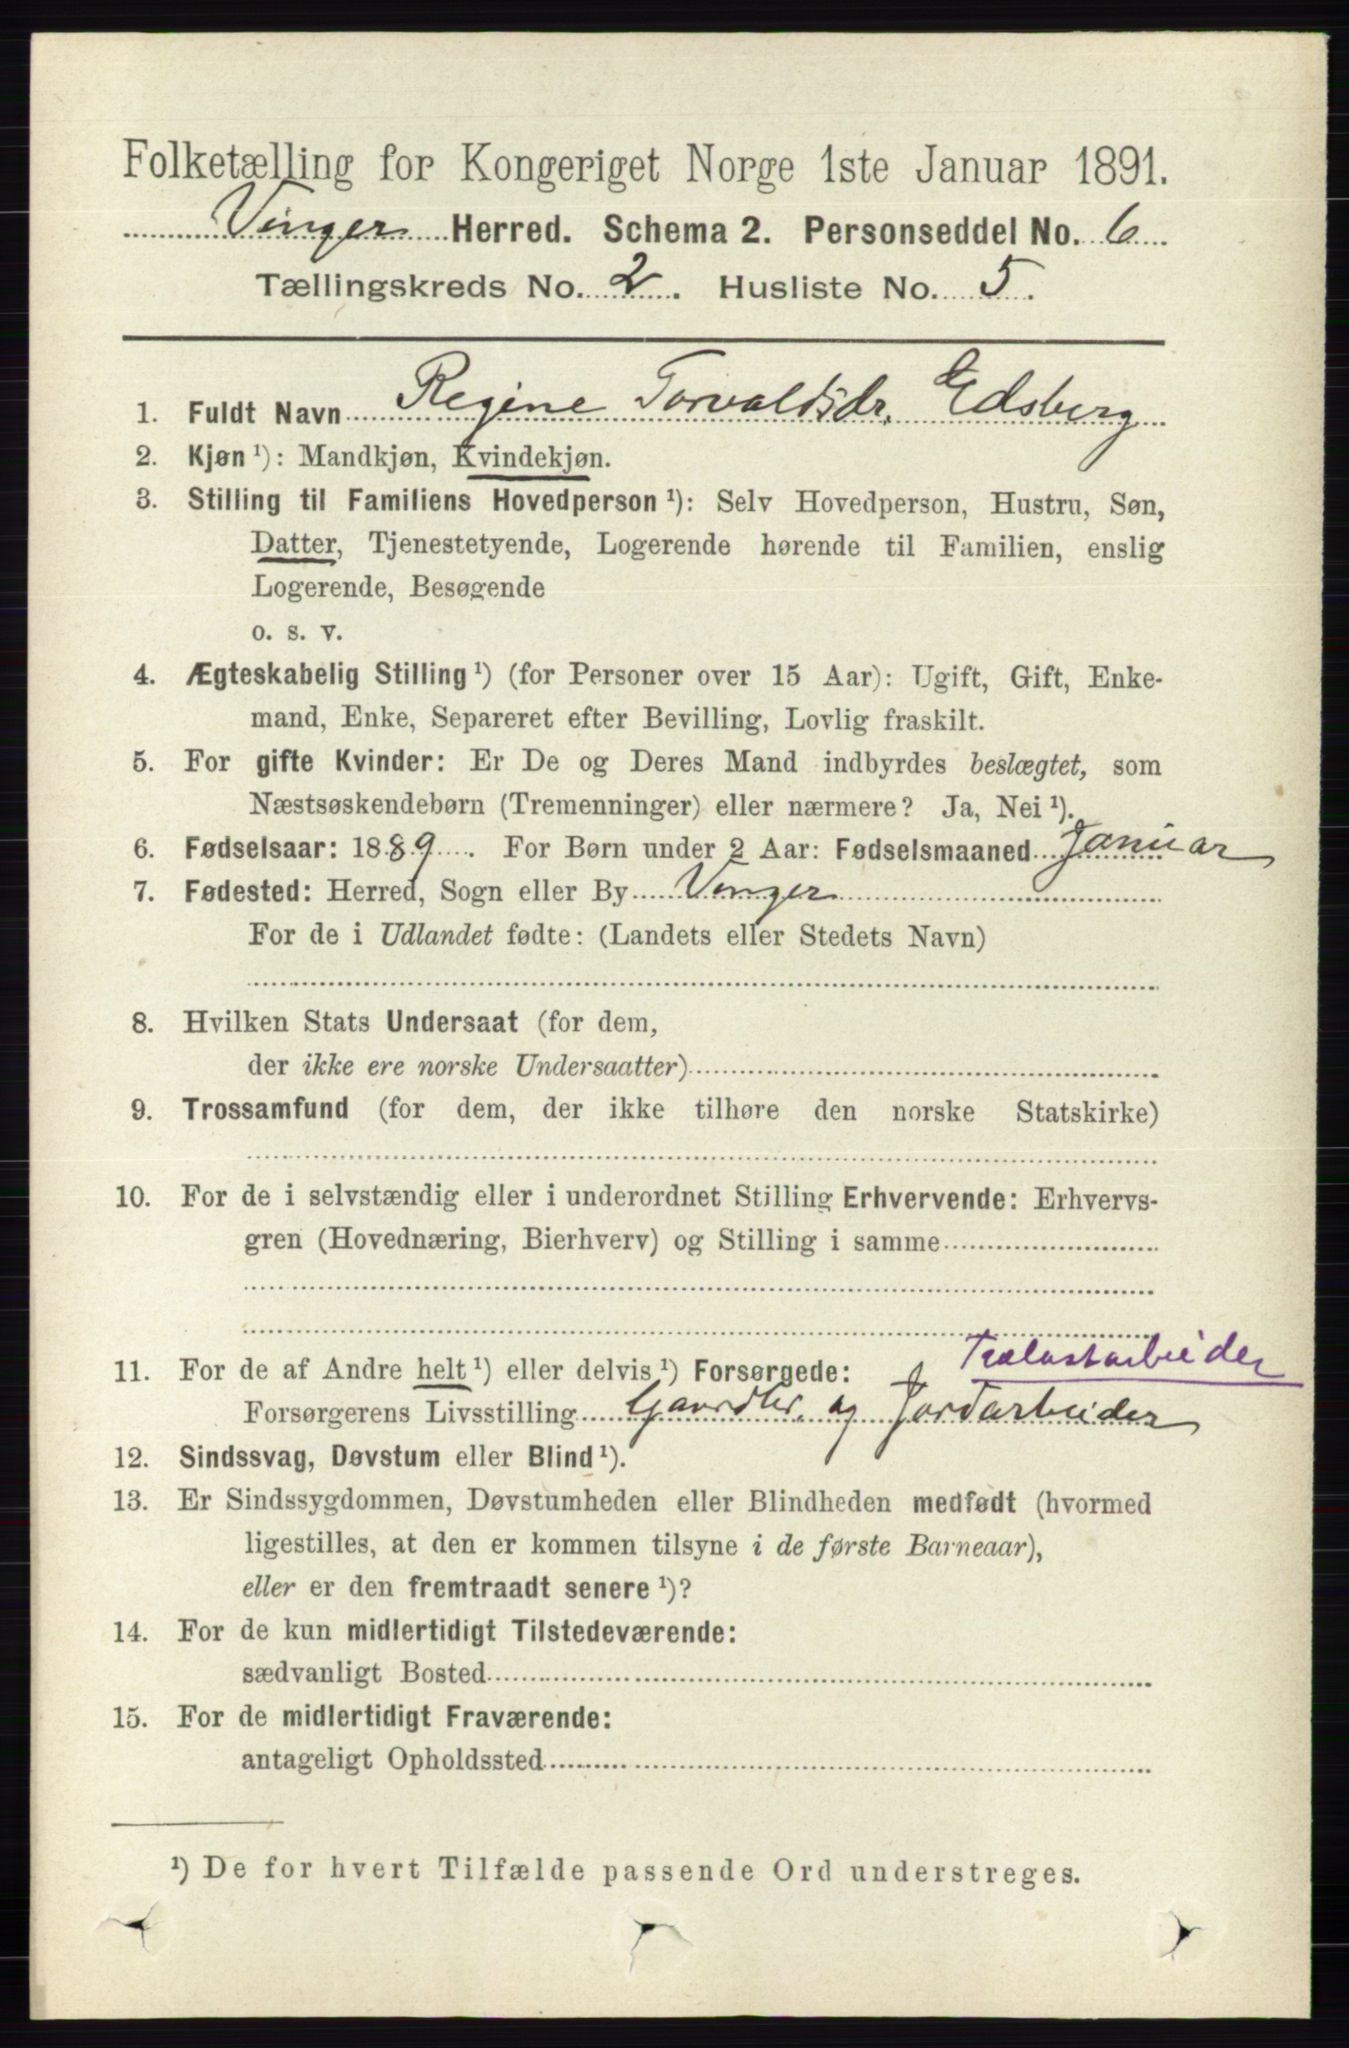 Folketælling for Kongeriget Norge 1ste Januar 1891.
Vinger Herred. Schema 2. Personseddel No. 6
Tællingskreds No. 2. Husliste No. 5.
1. Fuldt Navn Regine Torvaldsdr. Edsberg
2. Kjøn ¹): Mandkjøn, Kvindekjøn.
3. Stilling til Familiens Hovedperson ¹): Selv Hovedperson, Hustru, Søn,
Datter, Tjenestetyende, Logerende hørende til Familien, enslig
Logerende, Besøgende
o. s. v.
4. Ægteskabelig Stilling ¹) (for Personer over 15 Aar): Ugift, Gift, Enke-
mand, Enke, Separeret efter Bevilling, Lovlig fraskilt.
5. For gifte Kvinder: Er De og Deres Mand indbyrdes beslægtet, som
Næstsøskendebørn (Tremenninger) eller nærmere? Ja, Nei ¹).
6. Fødselsaar: 1889. For Børn under 2 Aar: Fødselsmaaned Januar
7. Fødested: Herred, Sogn eller By Vinger
For de i Udlandet fødte: (Landets eller Stedets Navn)
8. Hvilken Stats Undersaat (for dem,
der ikke ere norske Undersaatter)
9. Trossamfund (for dem, der ikke tilhøre den norske Statskirke)
10. For de i selvstændig eller i underordnet Stilling Erhvervende: Erhvervs-
gren (Hovednæring, Bierhverv) og Stilling i samme
Trælastarbeider
11. For de af Andre helt ¹) eller delvis ¹) Forsørgede:
Forsørgerens Livsstilling og Jordarbeider
12. Sindssvag, Døvstum eller Blind ¹).
13. Er Sindssygdommen, Døvstumheden eller Blindheden medfødt (hvormed
ligestilles, at den er kommen tilsyne i de første Barneaar),
eller er den fremtraadt senere ¹)?
14. For de kun midlertidigt Tilstedeværende:
sædvanligt Bosted
15. For de midlertidigt Fraværende:
antageligt Opholdssted
¹) De for hvert Tilfælde passende Ord understreges.